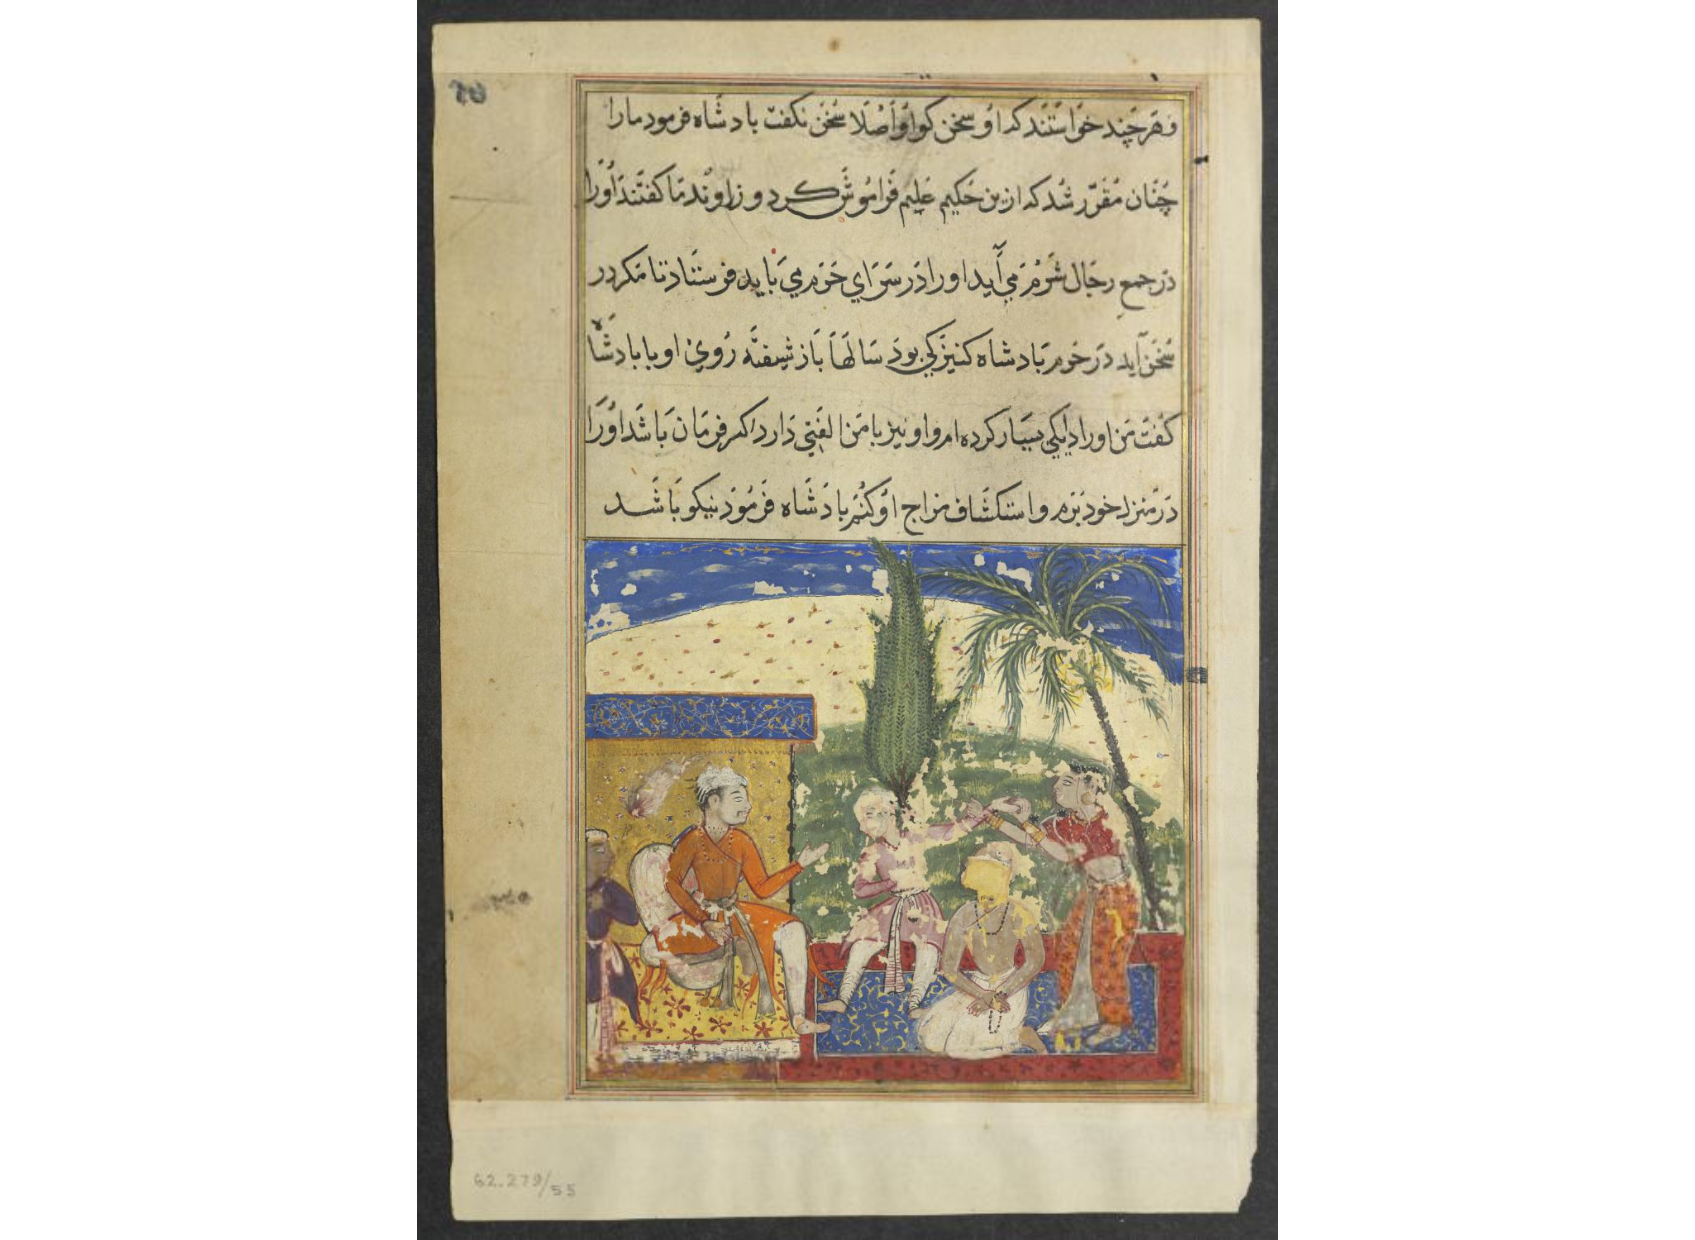 و هر چند خواستند که او سخن کو او اصلا سخن نکفت بادشاه فرمود مارا
چنان مقرر شد که ازین حکیم علیم فراموش کرد و زاوند ما کفتند اورا
در جمع رجال شرم می آید او را در سرای حرم می باید فرستاد تا مکر در
سخن آید در حرم بادشاه کنیزکی بود سالها باز شیفته روی او با بادشاه
کفت من اورا دایکی بسیار کرده ام و او نیز با من الفتی دارد اکر فرمان باشد اورا
در منزل خود برم و استکشاف مزاج او کنم بادشاه فرمود نیکو باشد
62.279/55